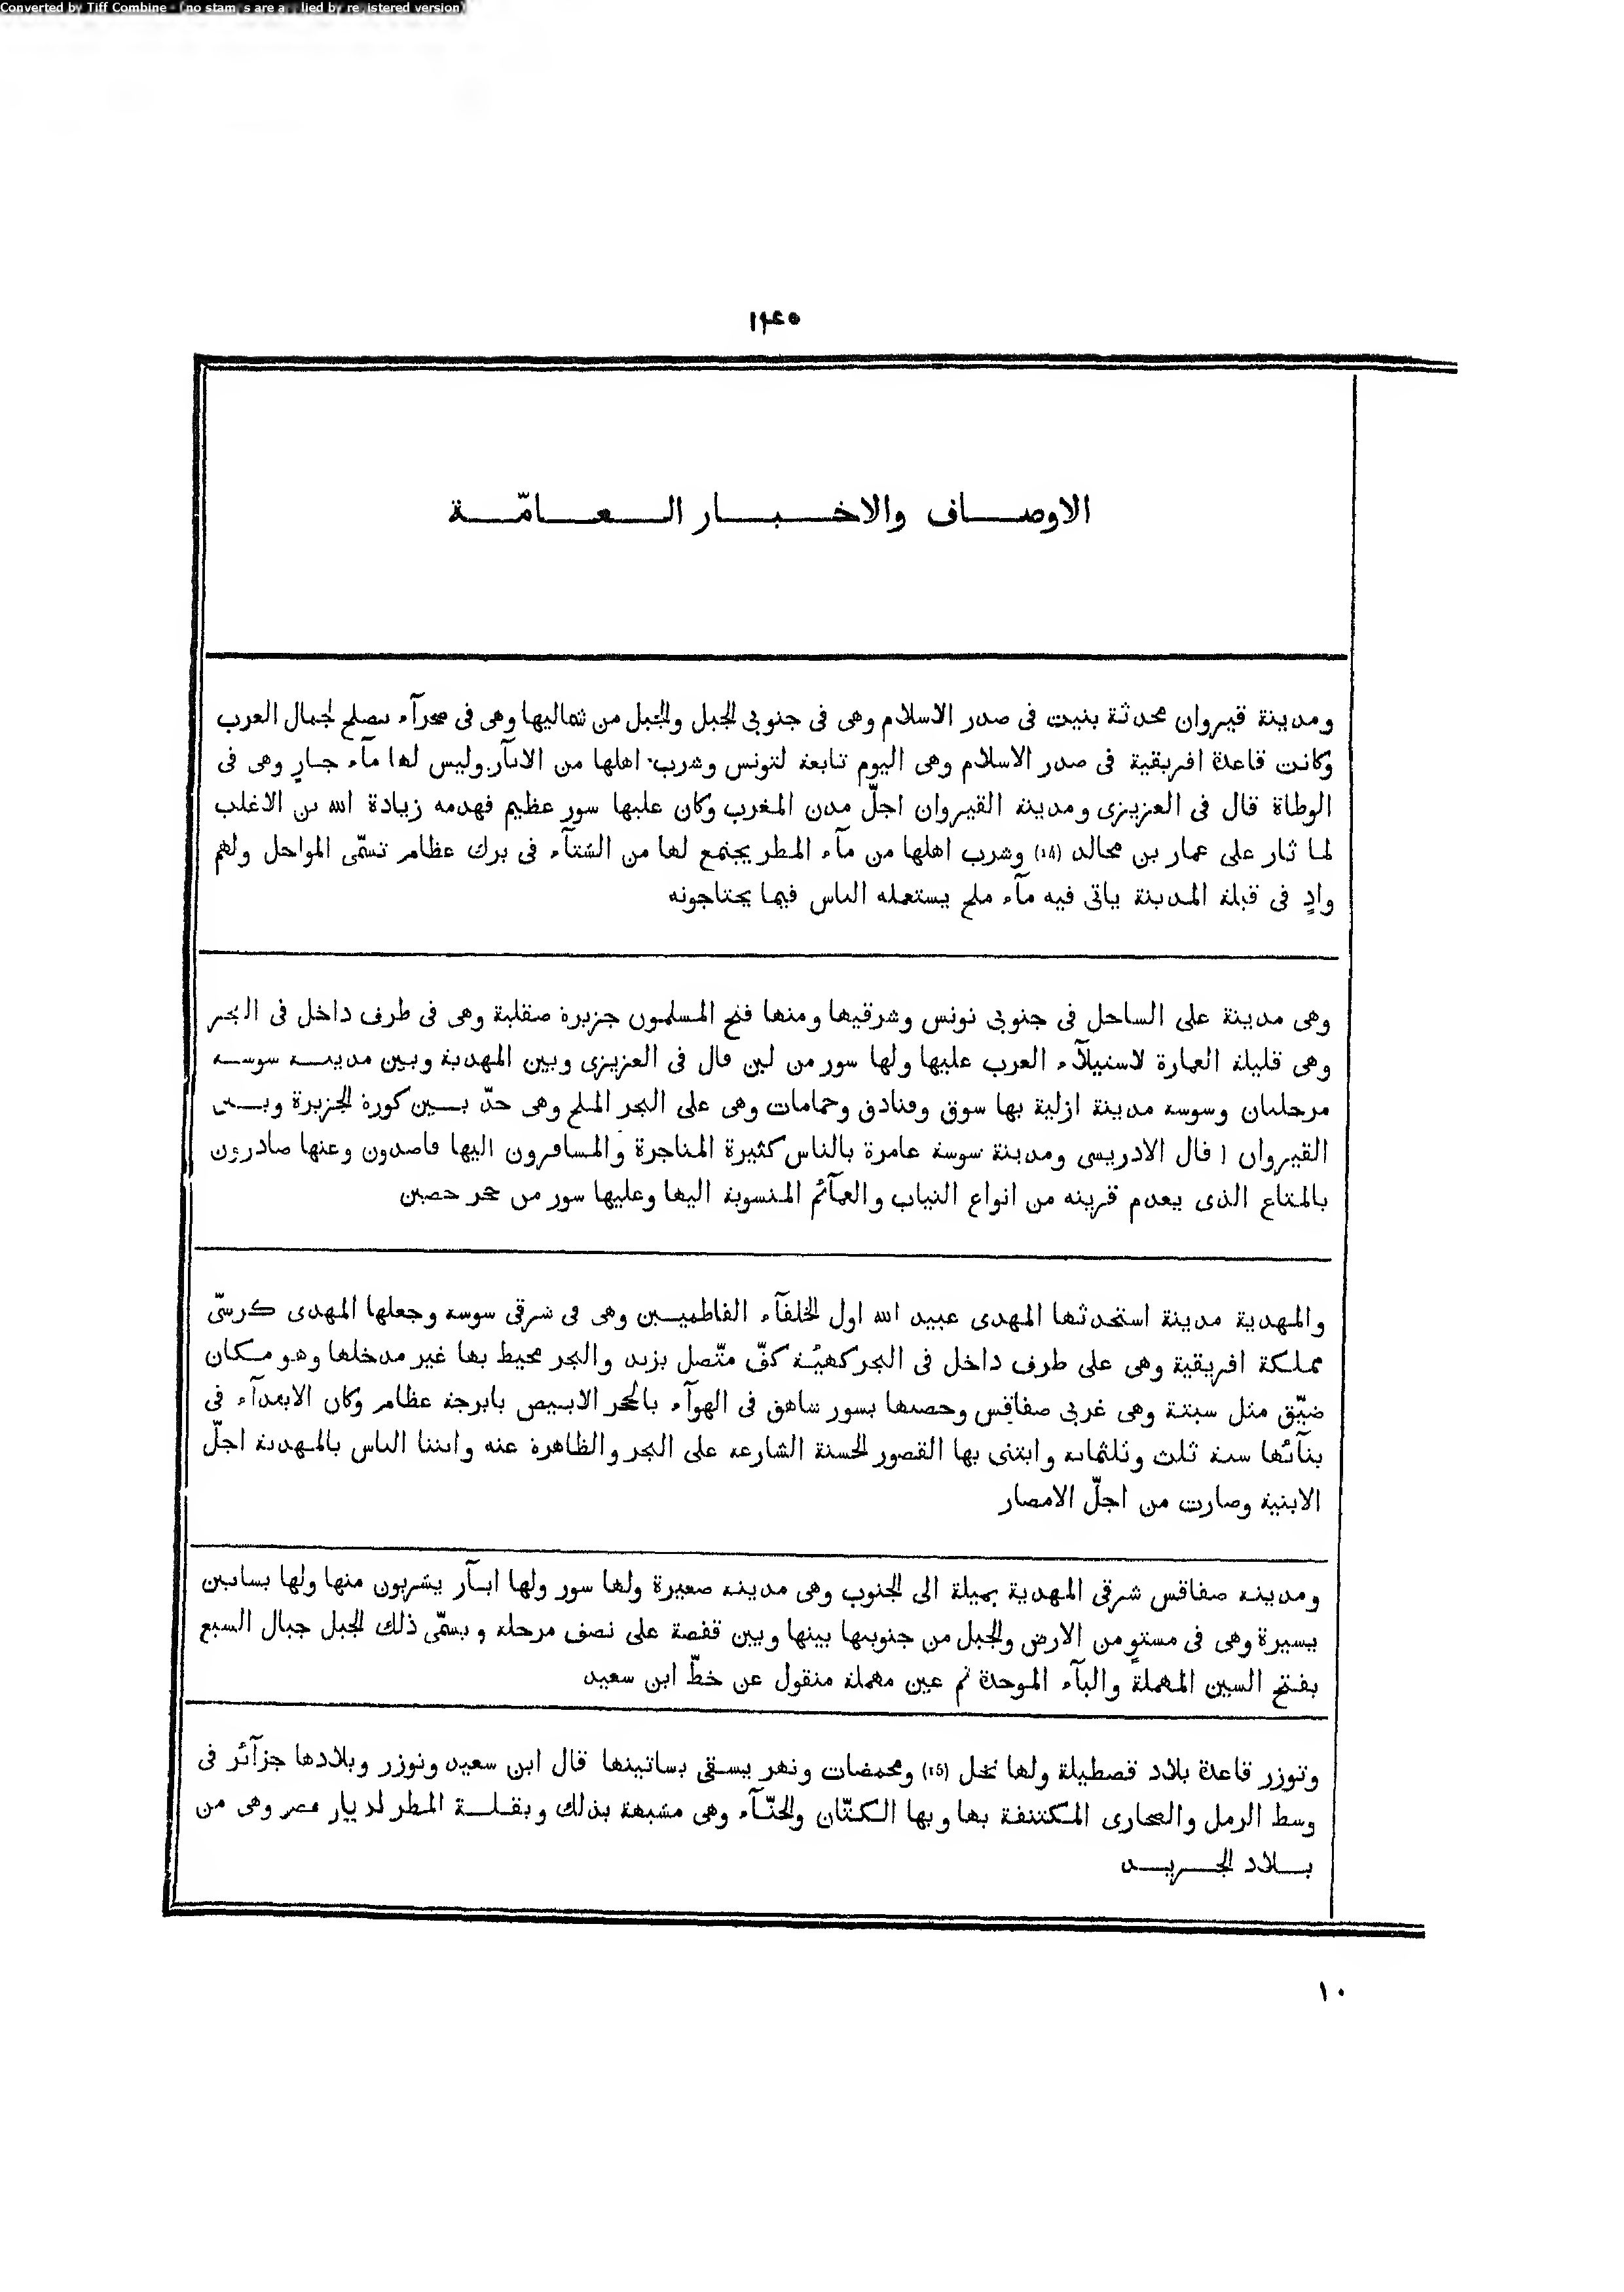 Converted by Tiff Combine - (no stamps are applied by registered version)
١٤٥
الاوصاف والاخبار العامّة
ومدينة قيروان محدثة بنيت فى صدر الاسلام وهى فى جنوبى الجبل والجبل من شماليها وهى فى صحرآء تصلح لجمال العرب
وكانت قاعدة افريقية فى صدر الاسلام وهى اليوم تابعة لتونس وشرب اهلها من الابآر وليس لها مآء جارٍ وهى فى
الوطاة قال فى العزيزى ومدينة القيروان اجلّ مدن المغرب وكان عليها سور عظيم فهدمه زيادة الله بن الاغلب
لما ثار على عمار بن مجالد (14) وشرب اهلها من مآء المطر يجتمع لها من الشتآء فى برك عظام تسمّى المواحل ولهم
وادٍ فى قبلة المدينة ياتى فيه مآء ملح يستعمله الناس فيما يحتاجونه
وهى مدينة على الساحل فى جنوبى تونس وشرقيها ومنها فتح المسلمون جزيرة صقلية وهى فى طرف داخل فى البحر
وهى قليلة العمارة لاستيلآء العرب عليها ولها سور من لبن قال فى العزيزى وبين المهدية وبين مدينة سوسة
مرحلتان وسوسة مدينة ازلية بها سوق وفنادق وحمامات وهى على البحر الملح وهى حدّ بين كورة الجزيرة وبين
القيروان ( قال الادريسى ومدينة سوسة عامرة بالناس كثيرة المتاجرة والمسافرون اليها قاصدون وعنها صادرون
بالمتاع الذى يعدم قرينه من انواع الثياب والعمآئم المنسوبة اليها وعليها سور من حجر حصين
والمهدية مدينة استحدثها المهدى عبيد الله اول الخلفآء الفاطميين وهى فى شرقى سوسة وجعلها المهدى كرسىّ
مملكة افريقية وهى على طرف داخل فى البحر كهيئة كفّ متّصل بزند والبحر محيط بها غير مدخلها وهو مكان
ضيّق مثل سبتة وهى غربى صفاقس وحصنها بسور شاهق فى الهوآء بالحجر الابيض بابرجة عظام وكان الابتدآء فى
بنآئها سنة ثلث وثلثمائة وابتنى بها القصور الحسنة الشارعة على البحر والظاهرة عنه وابتنا الناس بالمهدية اجلّ
الابنية وصارت من اجلّ الامصار
ومدينة صفاقس شرقى المهدية بميلة الى الجنوب وهى مدينة صغيرة ولها سور ولها ابآر يشربون منها ولها بساتين
يسيرة وهى فى مستوٍ من الارض والجبل من جنوبيها بينها وبين قفصة على نصف مرحلة ويسمّى ذلك الجبل جبال السبع
بفتح السين المهملة والبآء الموحدة ثم عين مهملة منقول عن خطّ ابن سعيد
وتوزر قاعدة بلاد قصطيلة ولها نخل (15) ومحمضات ونهر يسقى بساتينها قال ابن سعيد وتوزر وبلادها جزآئر فى
وسط الرمل والصحارى المكتنفة بها وبها الكتّان والحنّآء وهى مشبهة بذلك وبقلة المطر لديار مصر وهى من
بلاد الجريد
١٠